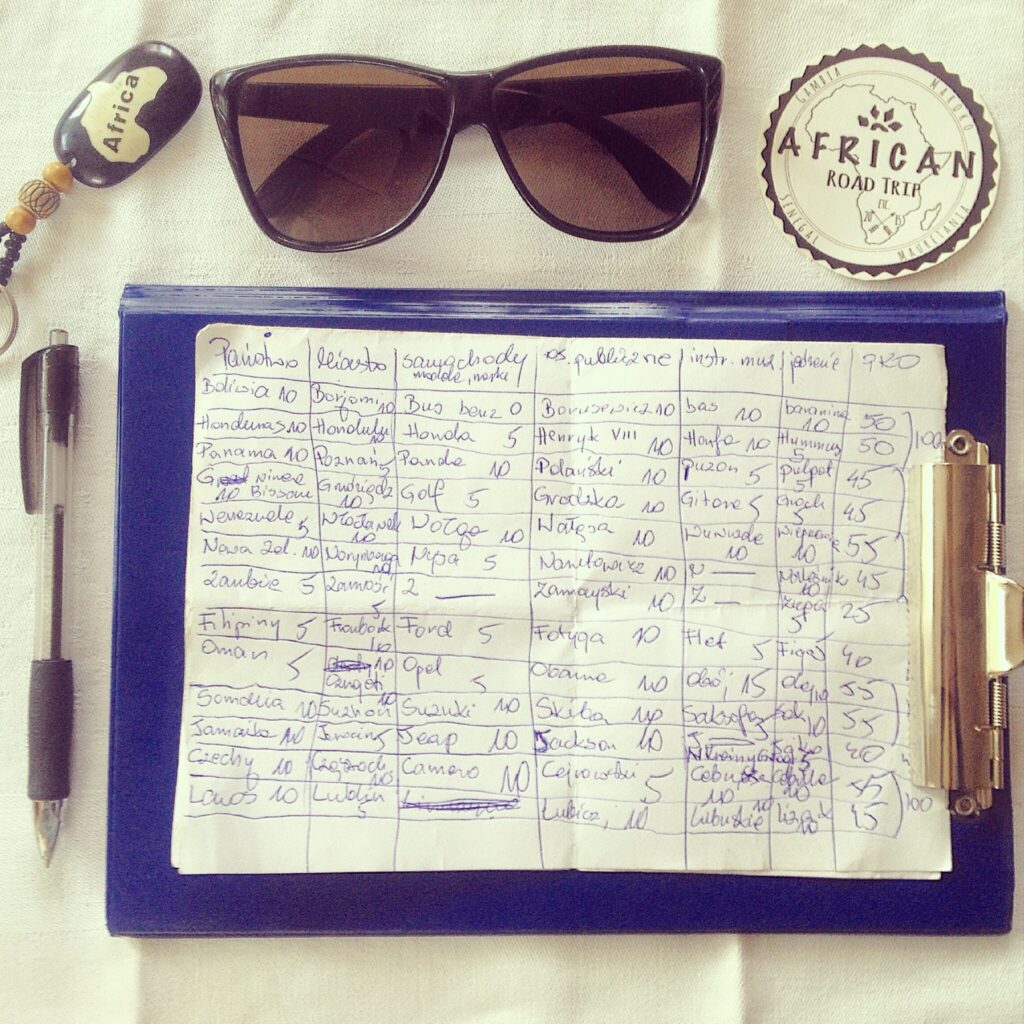 Africa
GAMBIA MAROKO
AFRICAN
ROAD TRIP
EK.
20 15
SENEGAL MAURETANIA
Państwo Miasto samochody os. publiczne instr. muz. jedzenie
modele, marka
Boliwia 10 Borjomi 10 Bus benz 0 Borusewicz 10 bas 10 baranina 10 50
Honduras 10 Honolulu 10 Honda 5 Henryk VIII 10 Harfa 10 Hummus 5 50 100
Panama 10 Poznań 5 Panda 10 Polański 10 puzon 5 pulpet 5 45
Gwinea Bissau 10 Grudziądz 10 Golf 5 Grodzka 10 Gitara 5 Groch 5 45
Wenezuela 5 Włocławek 10 Wołga 10 Wałęsa 10 Wuwuzela 10 10 55
Nowa Zel. 10 Norymberga 10 Nysa 5 10 Naleśnik 10 45
Zambia 5 Zamość 5 Z — Zamoyski 10 Z — 5 25
Filipiny 5 Frombork 10 Ford 5 Fotyga 10 Flet 5 Figa 5 40
Oman 5 10 Opel 5 Obama 10 obój 15 55
Somalia 10 10 Suzuki 10 Skiba 10 Saksofon 5 Sok 10 55
Jamaika 10 5 Jeap 10 Jackson 10 40
Czechy 10 10 Camaro 10 Cejrowski 5 10 Cebula 10
Laos 10 Lublin 5 Lubicz, 10 10 10 45 100